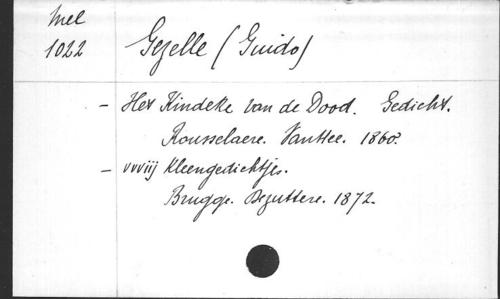 Mel
1022
Gezelle (Guido)
- Het Kindeke van de Dood. Gedicht.
Rousselaere. Vanhee. 1860.
- vvviij Kleengedichtjes.
Brugge. Dezuttere. 1872.